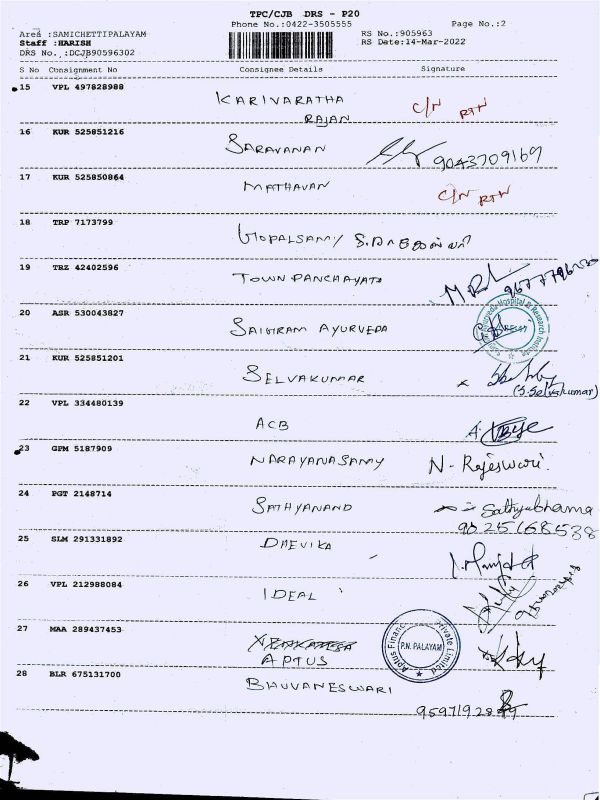 TPC/CJB DRS - P20
Phone No.:0422-3505555 Page No.:2
Area :SAMICHETTIPALAYAM RS No.:905963
Staff :HARISH RS Date:14-Mar-2022
DRS No. :DCJB90596302
S No Consignment No Consignee Details Signature
15 VPL 497828988 KARIVARATHA RAJAN C/N RTN
16 KUR 525851216 SARAVANAN 9043709169
17 KUR 525850864 MATHAVAN C/N RTN
18 TRP 7173799 GOPALSAMY
19 TRZ 42402596 TOWN PANCHAYAT
20 ASR 530043827 SAIGIRAM AYURVEDA
21 KUR 525851201 SELVAKUMAR (S.Selvakumar)
22 VPL 334480139 ACB
23 GPM 5187909 NARAYANASAMY N. Rajeswari.
24 PGT 2148714 SATHYANAND Sathyabhama
9025168538
25 SLM 291331892 DHEVIKA
26 VPL 212988084 IDEAL
27 MAA 289437453 APTUS Aptus Financ Private Limited P.N. PALAYAM
28 BLR 675131700 BHUVANESWARI